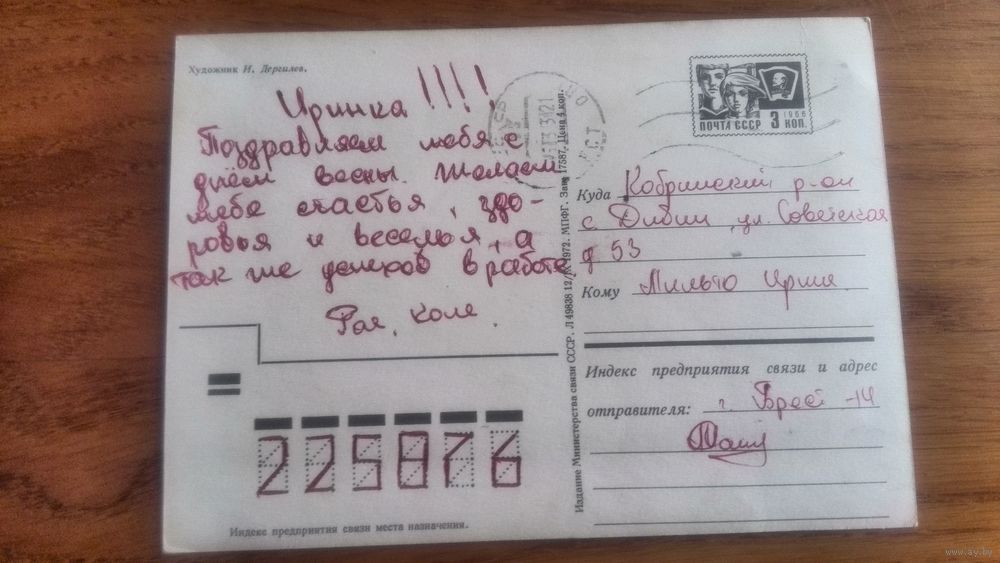 Художник И. Дергилев.
Иринка!!!!
Поздравляем тебя с
днём весны. Желаем
тебе счастья, здо-
ровья и веселья, а
так же успехов в работе
Рая, Коля.
Индекс предприятия связи места назначения.
225876
Издание Министерства связи СССР. Л 49838 12/IX 1972. МПФГ. Зак. 17587. Цена 4 коп.
ПОЧТА СССР 3 КОП. 1966
Куда Кобринский р-он
с. Дивин, ул. Советская
д 53
Кому Мильто Ирине
Индекс предприятия связи и адрес
отправителя: г. Брест -14
www.ay.by